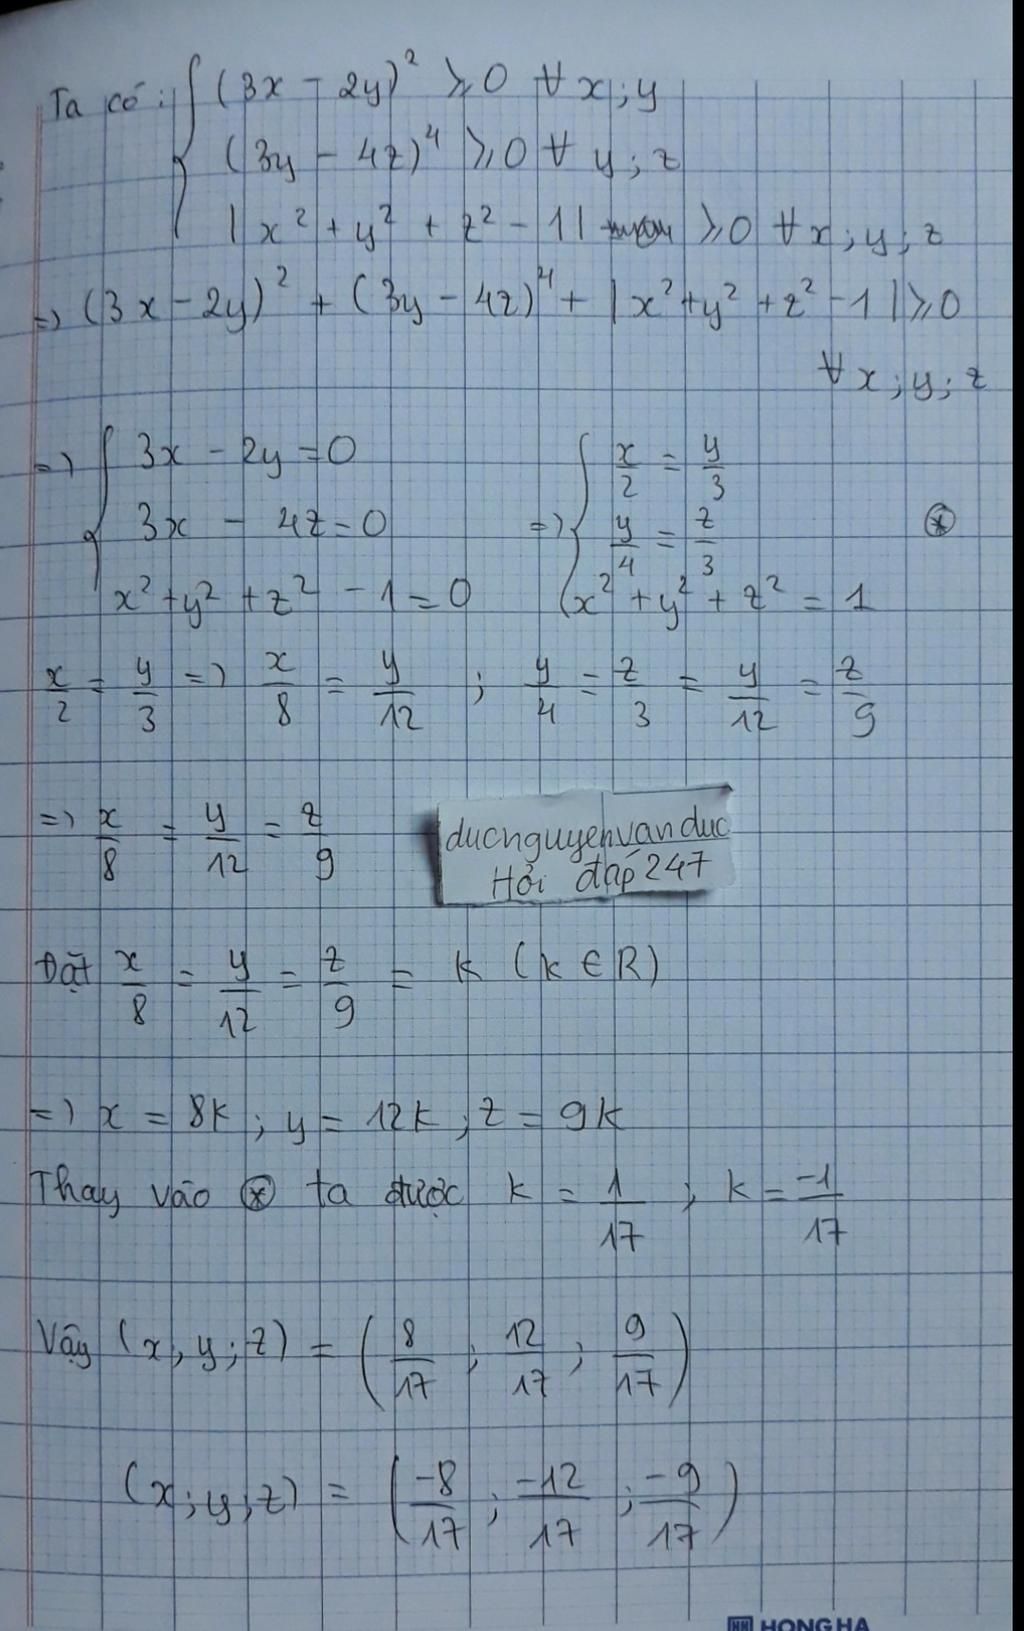 Ta có: { (3x - 2y)² ⩾ 0 ∀ x; y
(3y - 4z)⁴ ⩾ 0 ∀ y; z
|x² + y² + z² - 1| ⩾ 0 ∀ x; y; z
=> (3x - 2y)² + (3y - 4z)⁴ + |x² + y² + z² - 1| ⩾ 0
∀ x; y; z
=> { 3x - 2y = 0 => { x/2 = y/3
3x - 4z = 0 y/4 = z/3 (*)
x² + y² + z² - 1 = 0 x² + y² + z² = 1
x/2 = y/3 => x/8 = y/12 ; y/4 = z/3 = y/12 = z/9
=> x/8 = y/12 = z/9
ducnguyenvanduc
Hỏi đáp 247
Đặt x/8 = y/12 = z/9 = k (k ∈ R)
=> x = 8k; y = 12k; z = 9k
Thay vào (*) ta được k = 1/17 ; k = -1/17
Vậy (x, y; z) = (8/17 ; 12/17 ; 9/17)
(x; y; z) = (-8/17 ; -12/17 ; -9/17)
HH HONG HA